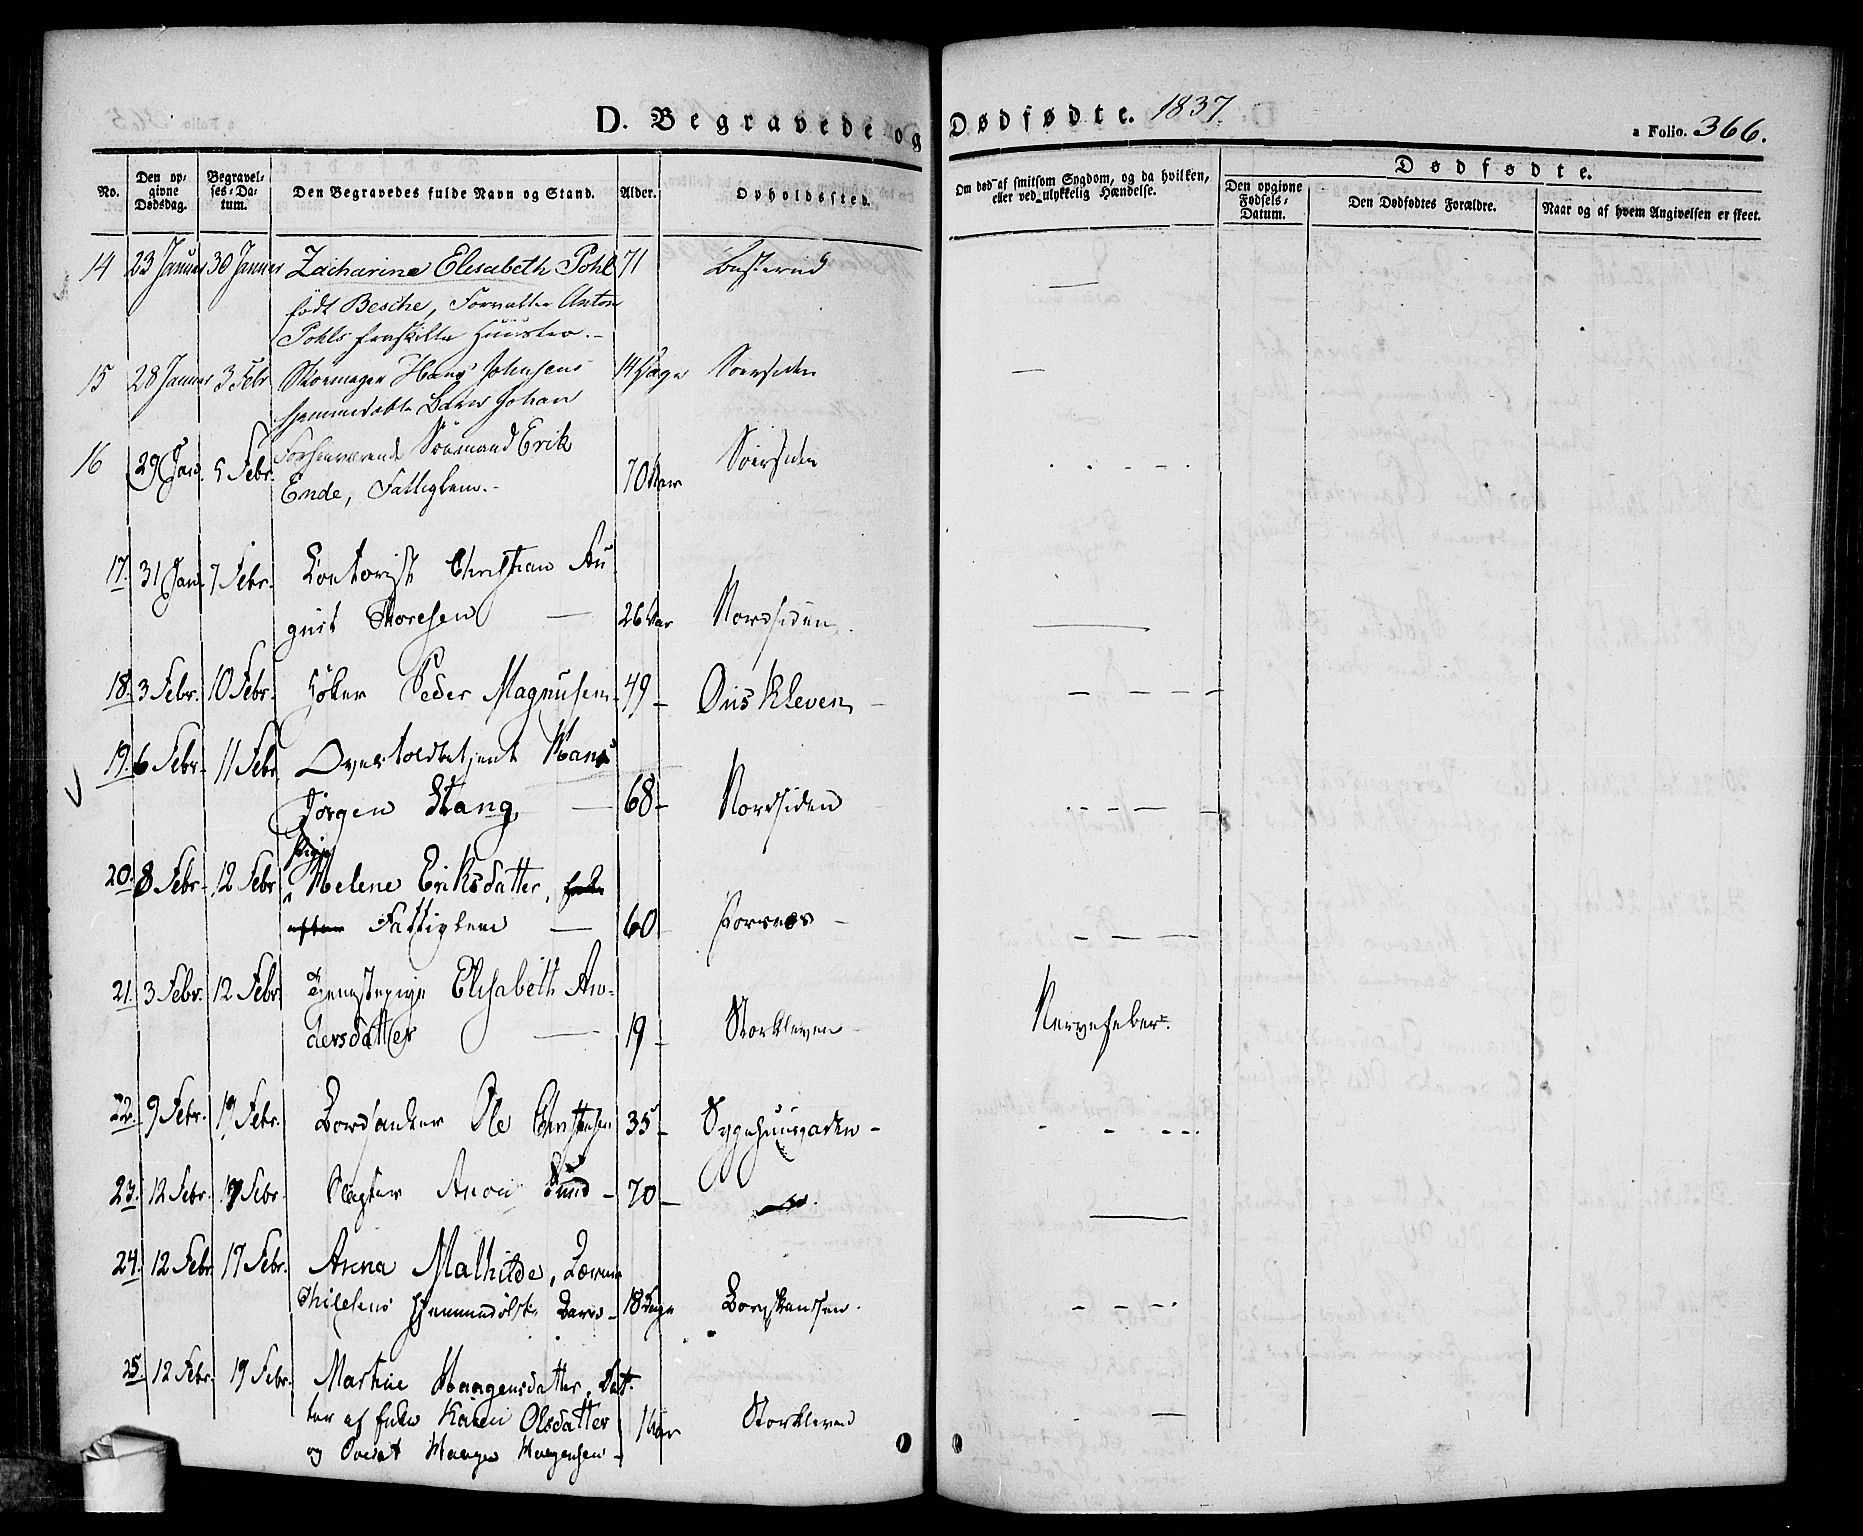 D. Begravede og Dødfødte. 1837.
a Folio. 366.
No.
Den opgivne Dødsdag.
Begravelses-Datum.
Den Begravedes fulde Navn og Stand.
Alder.
Opholdssted.
Om død af smitsom Sygdom, og da hvilken, eller ved ulykkelig Hændelse.
Dødfødte.
Den opgivne Fødsels-Datum.
Den Dødfødtes Forældre.
Naar og af hvem Angivelsen er skeet.
14 23 Januar 30 Januar Zacharine Elisabeth Pohl 71
født Besche, Forvalter Anton
Pohls fraskilte Huustro.-
15 28 Januar 3 Febr Skoemager Hans Johnsens 14 Dage Soersiden
hjemmedøbte Barn Johan
16 29 Jan. 5 Febr. Forhenværende Søemand Erik Soersiden
Ende, Fattiglem.- 70 Aar
17. 31 Jan. 7 Febr. Contorist Christian Au
gust Thoresen 26 Aar Nordsiden.
18. 3 Febr. 10 Febr. Høker Peder Magnusen 49- Øus Kleven -
19. 6 Febr. 11 Febr. Overtoldbetjent Hans
Jørgen Stang, 68- Nordsiden
Pige
20. 8 Febr. 12 Febr Helene Eriksdatter,
Fattiglem 60 Torsnæs -
21. 3 Febr. 12 Febr Tjenestepige Elisabeth An-
dersdatter 19- Storkleven Nervefeber.
22. 9 Febr. 19 Febr. Ole Christensen 35- Sygehuusgaden -
23. 12 Febr. 19 Febr. Slagter Aron Sund - 70-
24. 12 Febr 17 Febr. Anna Mathilde,
hjemmedøbte Barn - 18 Dage Borgskandsen.
25. 12 Febr. 19 Febr. Martine Haagensdatter, Dat-
ter af Enke Karen Olsdatter 1 Aar Storkleven
og Haagen Haagensen -